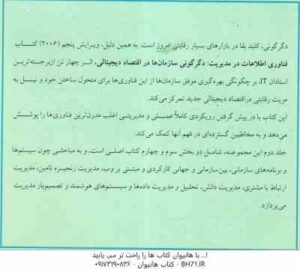 دگرگونی، کلید بقا در بازارهای بسیار رقابتی امروز است. به همین دلیل، ویرایش پنجم (۲۰۰۶) کتاب
فناوری اطلاعات در مدیریت: دگرگونی سازمان‌ها در اقتصاد دیجیتالی، اثر چهار تن از برجسته‌ترین
استادان IT، بر چگونگی بهره‌گیری موفق سازمان‌ها از این فناوری‌ها برای متحول ساختن خود و نیل به
مزیت رقابتی در اقتصاد دیجیتالی جدید تمرکز می‌کند.
این کتاب با در پیش گرفتن رویکردی کاملاً عملی و مدیریشی اغلب مدرن‌ترین فناوری‌ها را پوشش
می‌دهد و به مخاطبین گسترده‌ای در فهم آنها کمک می‌کند.
جلد دوم این مجموعه، شامل دو بخش سوم و چهارم کتاب اصلی است، و به مباحثی چون سیستم‌ها
و برنامه‌های سازمانی، بین‌سازمانی و جهانی کارکردی و مبتنی بر وب، مدیریت زنجیره تامین، مدیریت
ارتباط با مشتری، مدیریت دانش، تحلیل و مدیریت داده‌ها و سیستم‌های هوشمند و تصمیم‌یار مدیریت
می‌پردازد.
با هانیوان کتاب ها را راحت تر می یابید ...!
BH71.IR - کتاب هانیوان - ۰۹۱۷۳۱۹۰۸۳۶